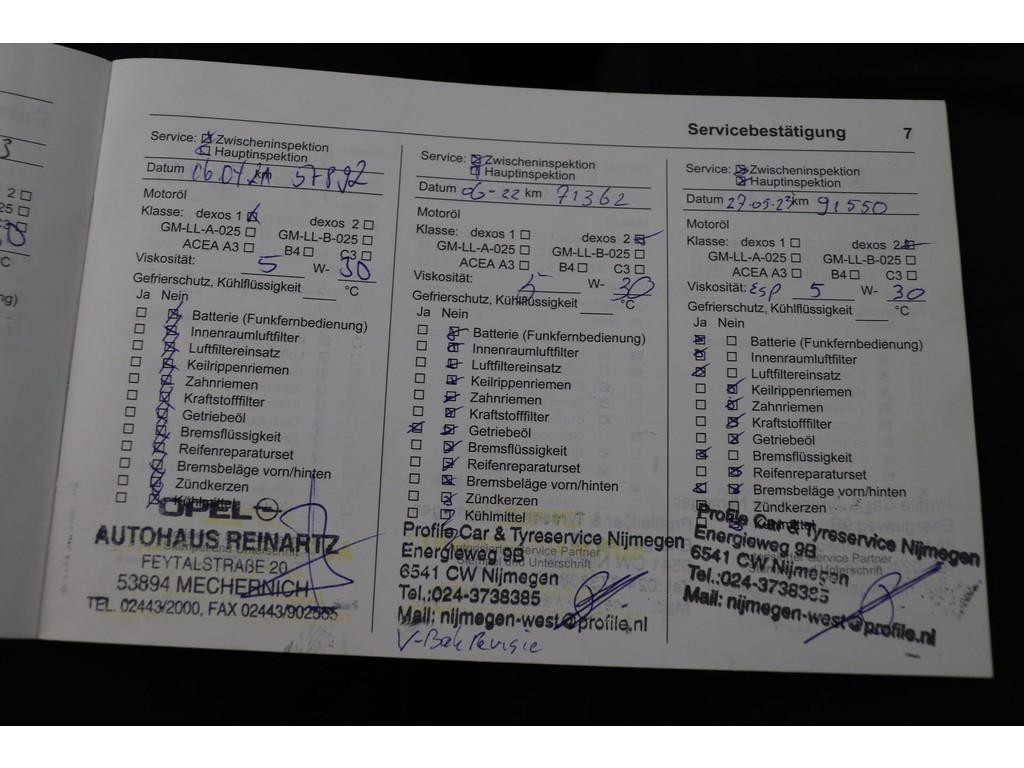 Servicebestätigung 7
Service: Zwischeninspektion
Hauptinspektion
Datum 06.04.21 km 57892
Motoröl
Klasse: dexos 1 dexos 2
GM-LL-A-025 GM-LL-B-025
ACEA A3 B4 C3
Viskosität: 5 W- 30
Gefrierschutz, Kühlflüssigkeit °C
Ja Nein
Batterie (Funkfernbedienung)
Innenraumluftfilter
Luftfiltereinsatz
Keilrippenriemen
Zahnriemen
Kraftstofffilter
Getriebeöl
Bremsflüssigkeit
Reifenreparaturset
Bremsbeläge vorn/hinten
Zündkerzen
Kühlmittel
OPEL
AUTOHAUS REINARTZ
Stempel und Unterschrift
FEYTALSTRAßE 20
53894 MECHERNICH
TEL. 02443/2000, FAX 02443/902555
Service: Zwischeninspektion
Hauptinspektion
Datum 06-22 km 71362
Motoröl
Klasse: dexos 1 dexos 2
GM-LL-A-025 GM-LL-B-025
ACEA A3 B4 C3
Viskosität: 5 W- 30
Gefrierschutz, Kühlflüssigkeit °C
Ja Nein
Batterie (Funkfernbedienung)
Innenraumluftfilter
Luftfiltereinsatz
Keilrippenriemen
Zahnriemen
Kraftstofffilter
Getriebeöl
Bremsflüssigkeit
Reifenreparaturset
Bremsbeläge vorn/hinten
Zündkerzen
Kühlmittel
Profile Car & Tyreservice Nijmegen
Energieweg 9B
Service Partner
Stempel und Unterschrift
6541 CW Nijmegen
Tel.:024-3738385
Mail: nijmegen-west@profile.nl
V-Bak Revisie
Service: Zwischeninspektion
Hauptinspektion
Datum 27-05-23 km 91550
Motoröl
Klasse: dexos 1 dexos 2
GM-LL-A-025 GM-LL-B-025
ACEA A3 B4 C3
Viskosität: ESP 5 W- 30
Gefrierschutz, Kühlflüssigkeit °C
Ja Nein
Batterie (Funkfernbedienung)
Innenraumluftfilter
Luftfiltereinsatz
Keilrippenriemen
Zahnriemen
Kraftstofffilter
Getriebeöl
Bremsflüssigkeit
Reifenreparaturset
Bremsbeläge vorn/hinten
Zündkerzen
Kühlmittel
Profile Car & Tyreservice Nijmegen
Energieweg 9B
Service Partner
Unterschrift
6541 CW Nijmegen
Tel.:024-3738385
Mail: nijmegen-west@profile.nl